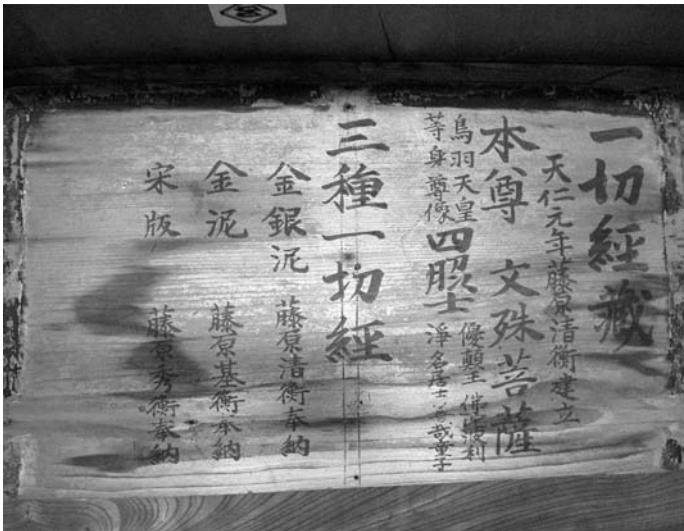 一切經藏
天仁元年藤原清衡建立
本尊 文殊菩薩
鳥羽天皇
等身尊像
四脇士
優顛王 波利
淨名居士 善哉童子
三種一切經
金銀泥 藤原清衡奉納
金泥 藤原基衡奉納
宋版 藤原秀衡奉納